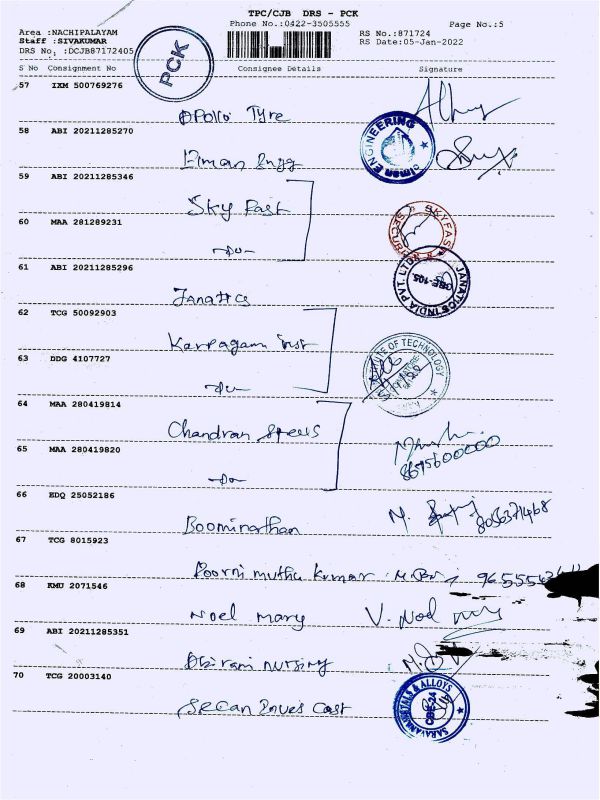 TPC/CJB DRS - PCK
Phone No.:0422-3505555 Page No.:5
Area :NACHIPALAYAM RS No.:871724
Staff :SIVAKUMAR RS Date:05-Jan-2022
DRS No. :DCJB87172405
PCK
S No Consignment No Consignee Details Signature
57 IXM 500769276
Apollo Tyre
58 ABI 20211285270
ENGINEERING
59 ABI 20211285346
Sky Fast
60 MAA 281289231
-do-
SKYFAS
61 ABI 20211285296
Janatics
JANATICS INDIA PVT. LTD
CBE-105.
62 TCG 50092903
Karpagam inst
63 DDG 4107727
-do-
OF TECHNOLOGY
64 MAA 280419814
Chandran Steels
65 MAA 280419820
-do-
8675600000
66 EDQ 25052186
Boominathan M. 8056371468
67 TCG 8015923
Poorni muthu kumar
68 KMU 2071546
Noel Mary V. Noel
69 ABI 20211285351
nursing
70 TCG 20003140
Cast
SARAVANA METALS & ALLOYS
CBE-24